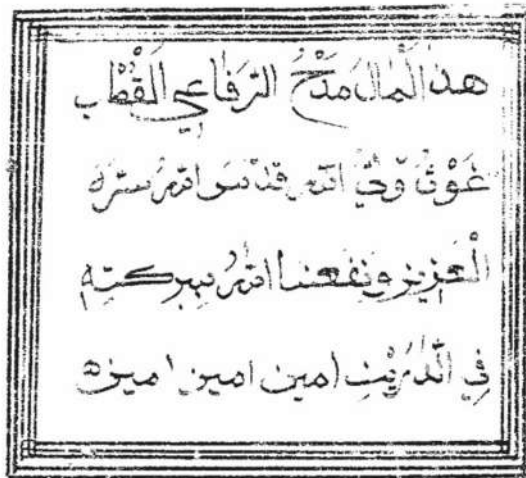 هذا المال مدح الرفاعي القطب
غوث ولي الله قدس الله سره
العزيز ونفعنا الله ببركته
في الدارين امين امين امين